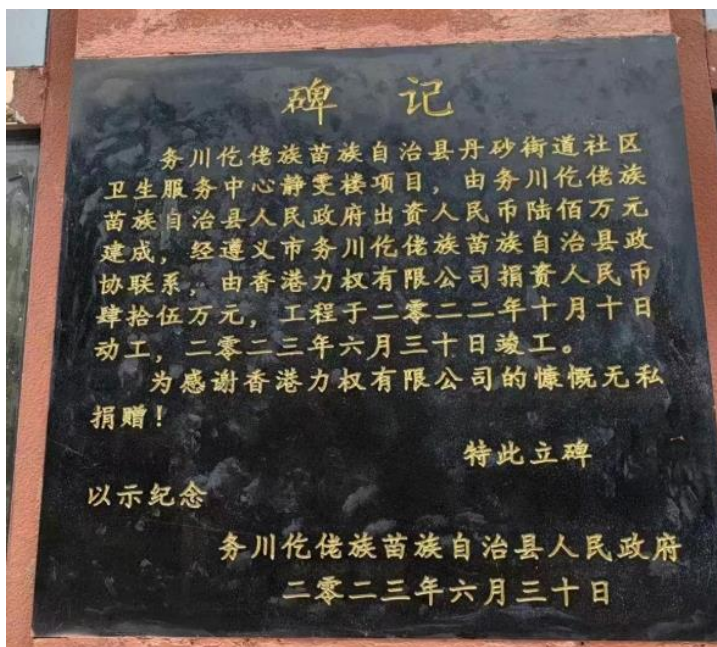 碑 记
务川仡佬族苗族自治县丹砂街道社区
卫生服务中心静雯楼项目，由务川仡佬族
苗族自治县人民政府出资人民币陆佰万元
建成，经遵义市务川仡佬族苗族自治县政
协联系，由香港力权有限公司捐资人民币
肆拾伍万元，工程于二零二二年十月十日
动工，二零二三年六月三十日竣工。
为感谢香港力权有限公司的慷慨无私
捐赠！
特此立碑
以示纪念
务川仡佬族苗族自治县人民政府
二零二三年六月三十日